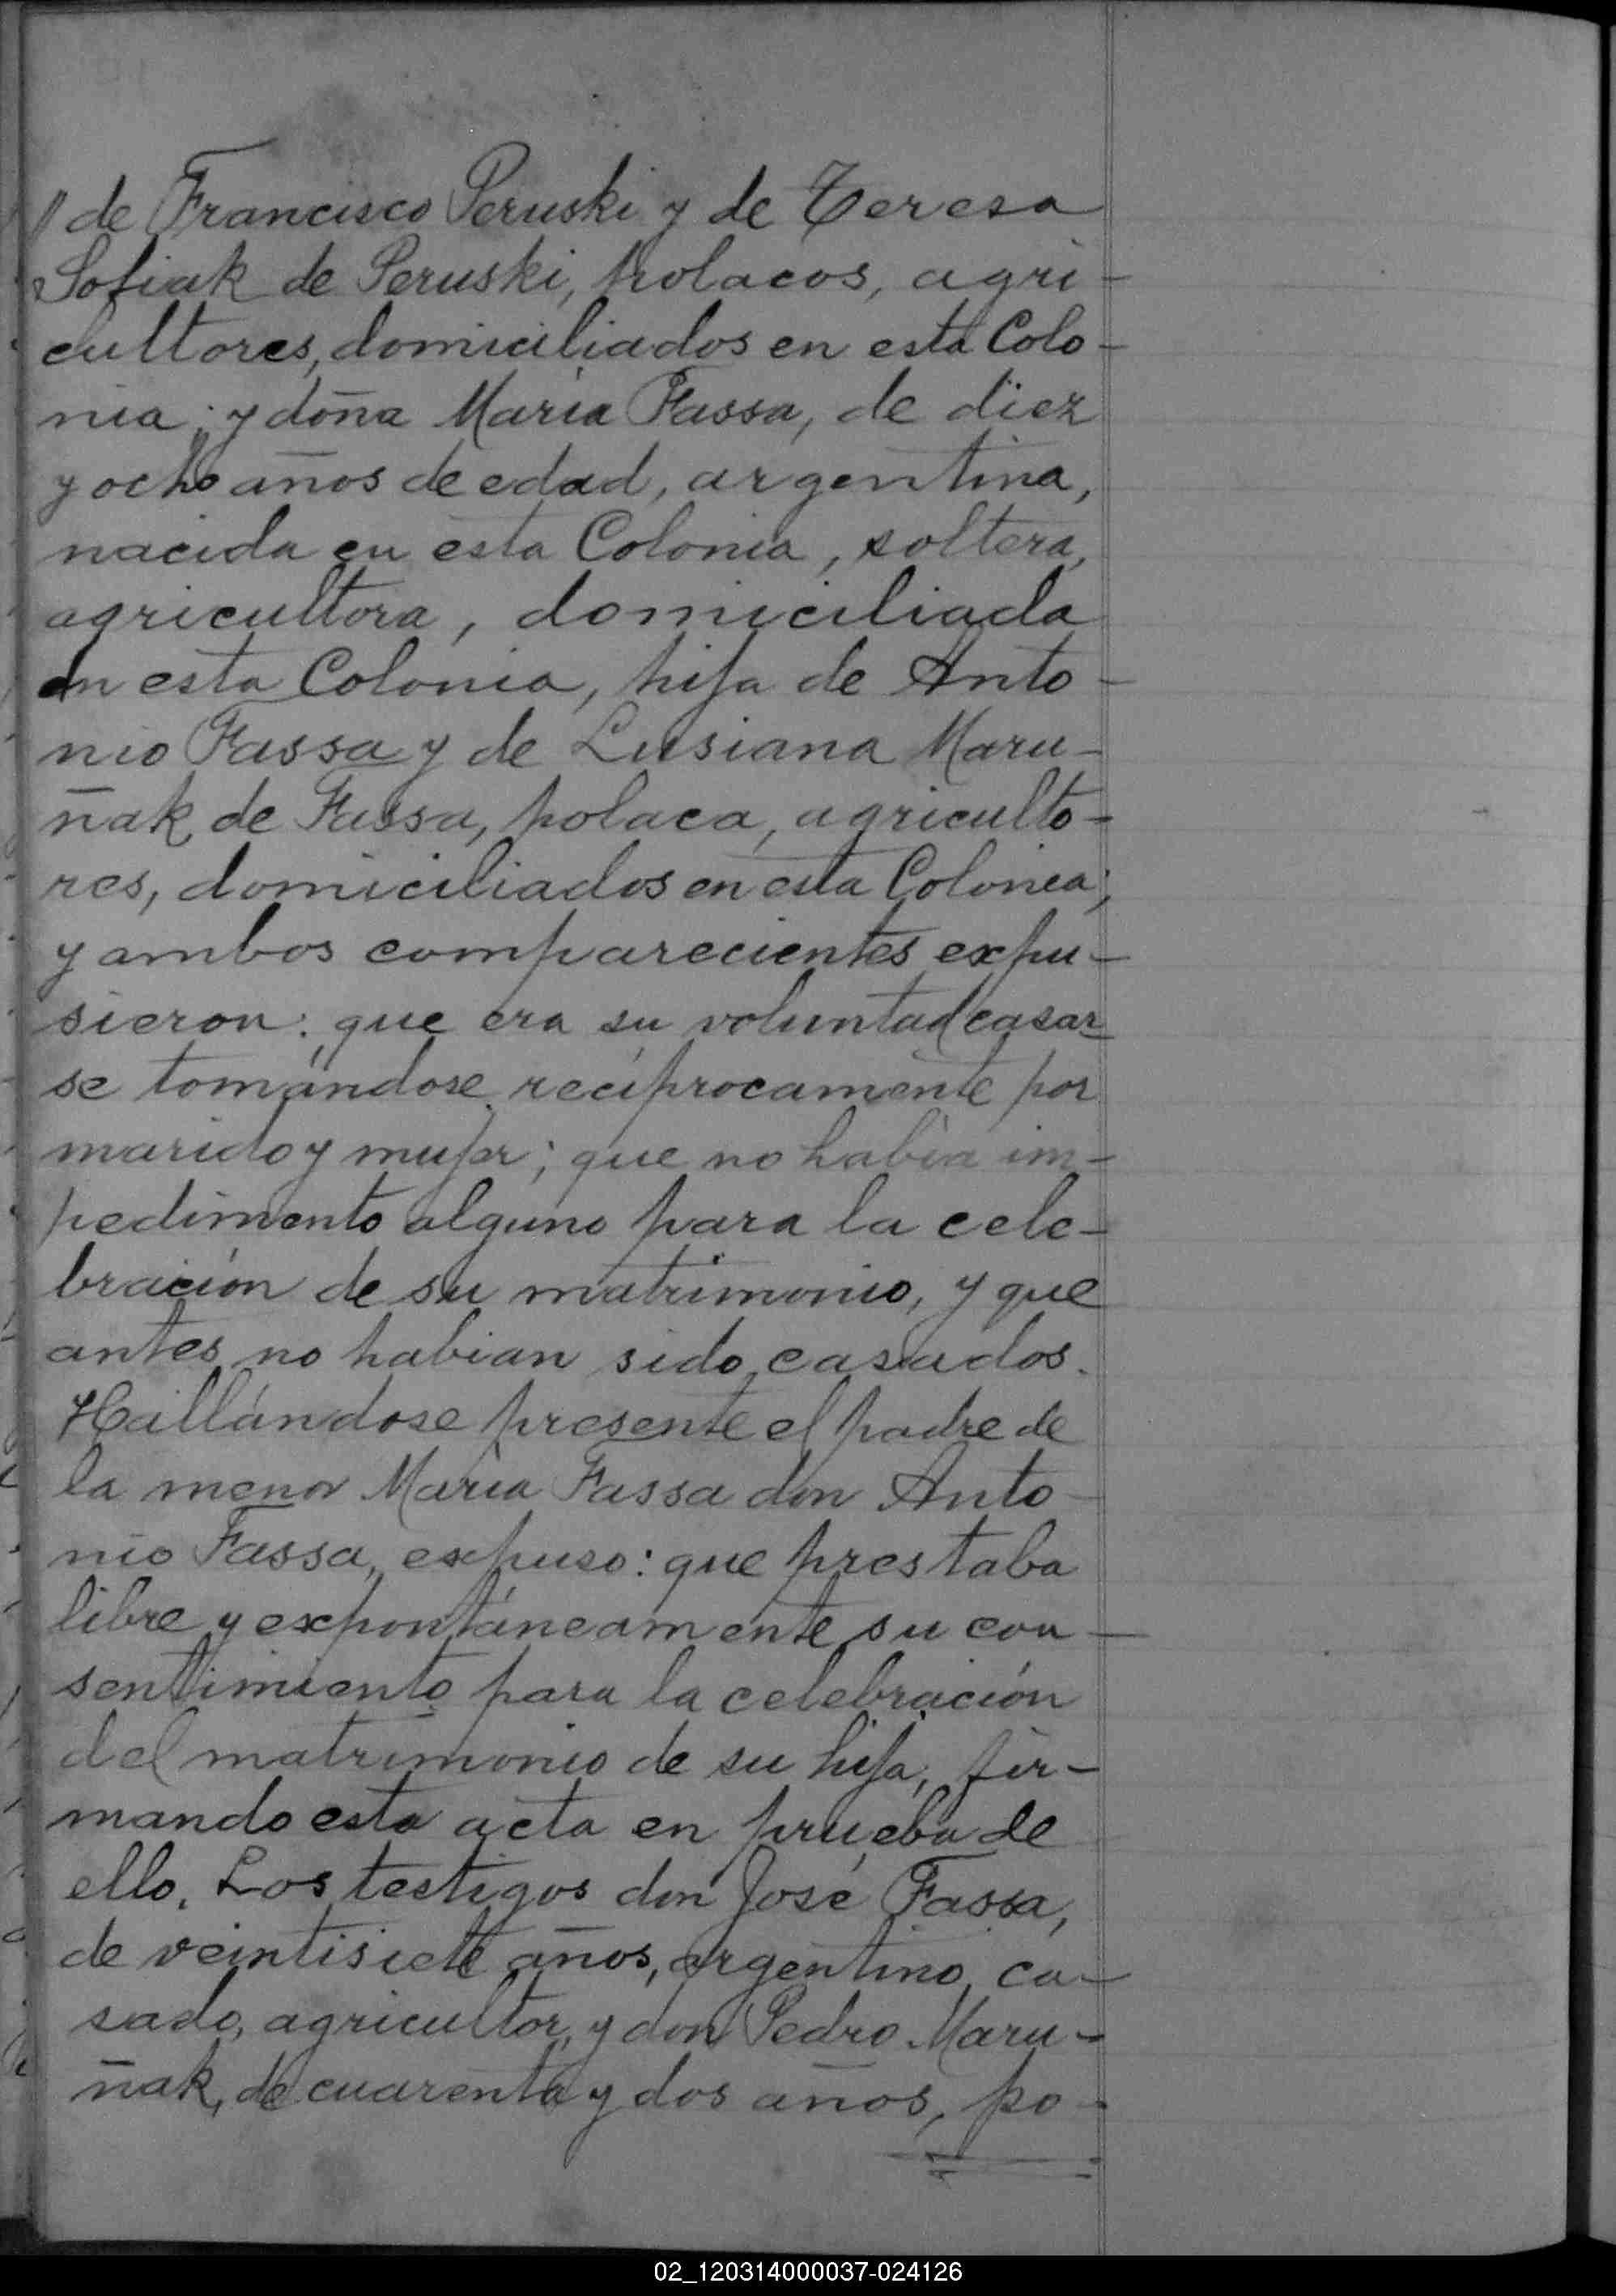 // de Francisco Peruski y de Teresa
Sofiak de Peruski, polacos, agri-
cultores, domiciliados en esta Colo-
nia; y doña María Fassa, de diez
y ocho años de edad, argentina,
nacida en esta Colonia, soltera,
agricultora, domiciliada
en esta Colonia, hija de Anto-
nio Fassa y de Lusiana Maru-
ñak de Fassa, polaca, agriculto-
res, domiciliados en esta Colonia;
y ambos comparecientes expu-
sieron: que era su voluntad casar
se tomándose recíprocamente por
marido y mujer; que no había im-
pedimento alguno para la cele-
bración de su matrimonio, y que
antes no habian sido casados.
Hallándose presente el padre de
la menor María Fassa don Anto-
nio Fassa, expuso: que prestaba
libre y expontáneamente su con-
sentimiento para la celebración
del matrimonio de su hija, fir-
mando esta acta en prueba de
ello. Los testigos don José Fassa,
de veintisiete años, argentino, ca-
sado, agricultor, y don Pedro Maru-
ñak, de cuarenta y dos años, po-
02_120314000037-024126